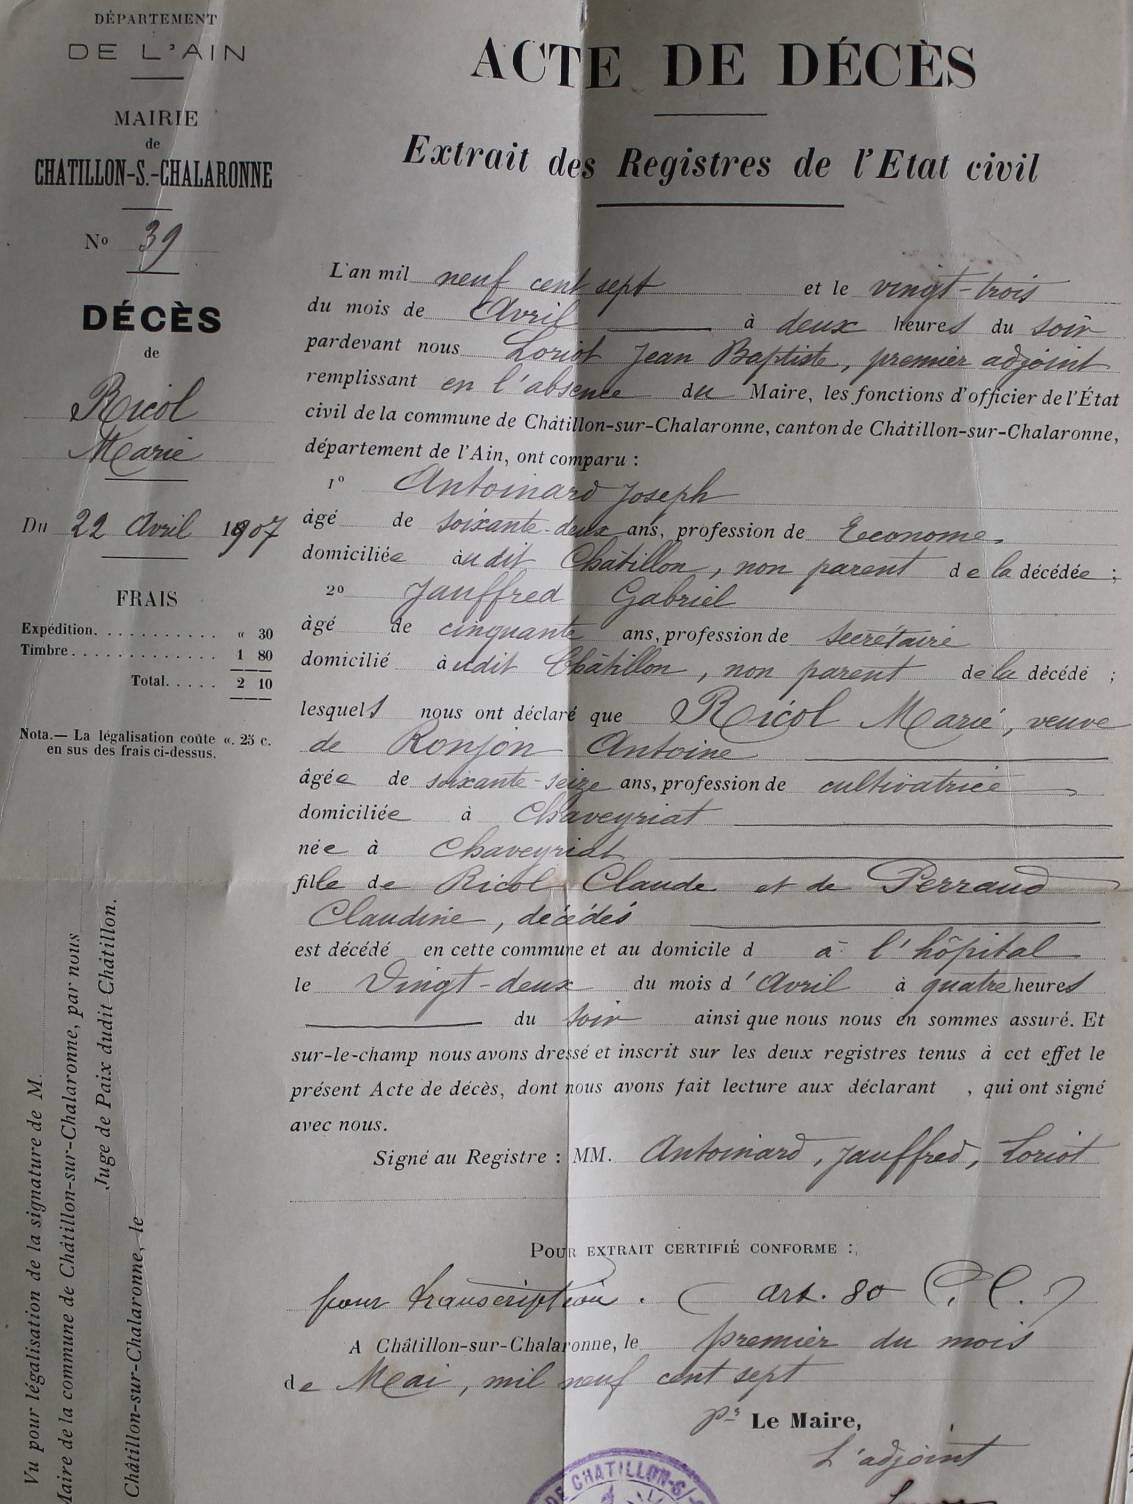 DÉPARTEMENT
DE L'AIN
MAIRIE
de
CHATILLON-S.-CHALARONNE
No 39
DÉCÈS
de
Ricol
Marie
Du 22 Avril 1907
FRAIS
Expédition. . . . . . . . . . . " 30
Timbre. . . . . . . . . . . . . 1 80
Total. . . . . 2 10
Nota.— La légalisation coûte «. 25 c.
en sus des frais ci-dessus.
Vu pour légalisation de la signature de M.
Maire de la commune de Châtillon-sur-Chalaronne, par nous
Juge de Paix dudit Châtillon.
Châtillon-sur-Chalaronne, le
ACTE DE DÉCÈS
Extrait des Registres de l'Etat civil
L'an mil neuf cent sept et le vingt-trois
du mois de Avril à deux heures du soir
pardevant nous Loriot Jean Baptiste, premier adjoint
remplissant en l'absence du Maire, les fonctions d'officier de l'État
civil de la commune de Châtillon-sur-Chalaronne, canton de Châtillon-sur-Chalaronne,
département de l'Ain, ont comparu :
1o Antoinard Joseph
âgé de soixante-deux ans, profession de Econome.
domiciliée àu dit Châtillon, non parent de la décédée ;
2o Jauffred Gabriel
âgé de cinquante ans, profession de secrétaire
domicilié àudit Châtillon, non parent de la décédé ;
lesquels nous ont déclaré que Ricol Marie, veuve
de Ronjon Antoine
âgée de soixante-seize ans, profession de cultivatrice
domiciliée à Chaveyriat
née à Chaveyriat
fille de Ricol Claude et de Perraud
Claudine, décédés
est décédé en cette commune et au domicile d à l'hôpital
le Vingt-deux du mois d'Avril à quatre heures
du soir ainsi que nous nous en sommes assuré. Et
sur-le-champ nous avons dressé et inscrit sur les deux registres tenus à cet effet le
présent Acte de décès, dont nous avons fait lecture aux déclarant , qui ont signé
avec nous.
Signé au Registre : MM. Antoinard, Jauffred, Loriot
POUR EXTRAIT CERTIFIÉ CONFORME :
pour transcription. (art. 80 C. C.)
A Châtillon-sur-Chalaronne, le premier du mois
de Mai, mil neuf cent sept
pr Le Maire,
L'adjoint
DE CHATILLON-S/-